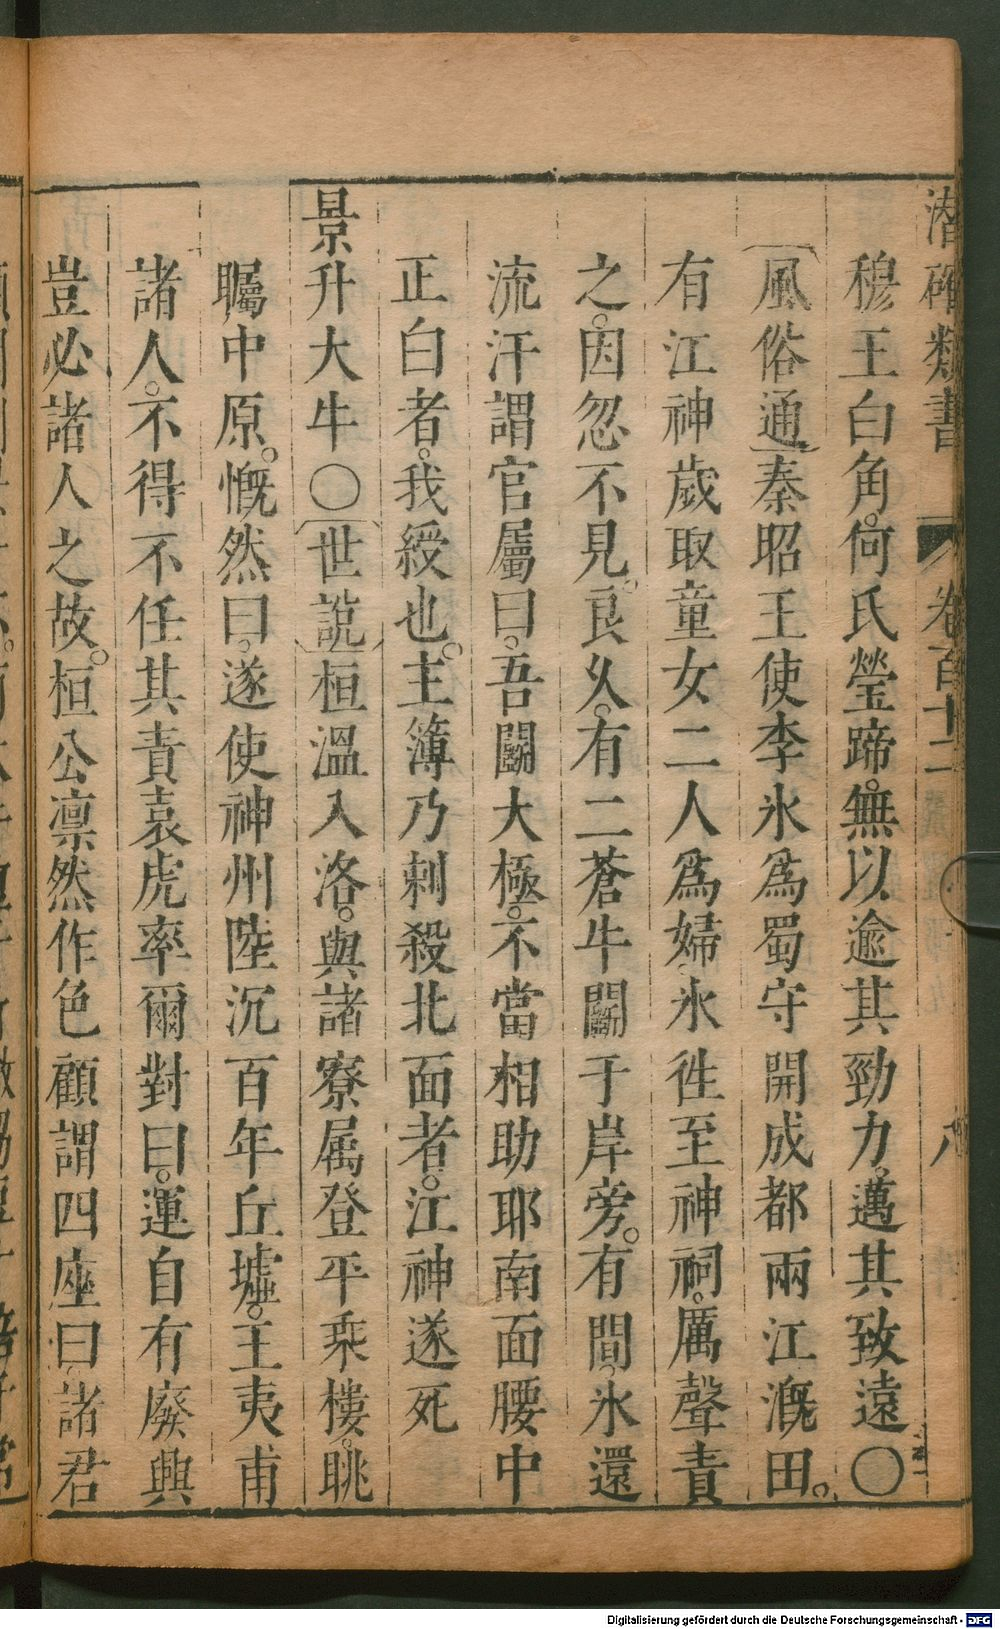 潛確類書 卷百十二 八
穆王白角。何氏瑩蹄。無以逾其勁力。邁其致遠〇
〔風俗通〕秦昭王使李氷為蜀守開成都兩江漑田。
有江神歲取童女二人為婦氷徃至神祠。厲聲責
之。因忽不見。良久。有二蒼牛鬭于岸旁。有間。氷還
流汗謂官屬曰。吾鬭大極。不當相助耶南面腰中
正白者。我綬也。主簿乃刺殺北面者。江神遂死
景升大牛〇〔世說〕桓溫入洛。與諸寮属登平乗樓。眺
矚中原。慨然曰。遂使神州陸沉百年丘墟。王夷甫
諸人。不得不任其責袁虎率爾對曰。運自有廢興
豈必諸人之故。桓公凛然作色顧謂四座曰。諸君
Digitalisierung gefördert durch die Deutsche Forschungsgemeinschaft - DFG